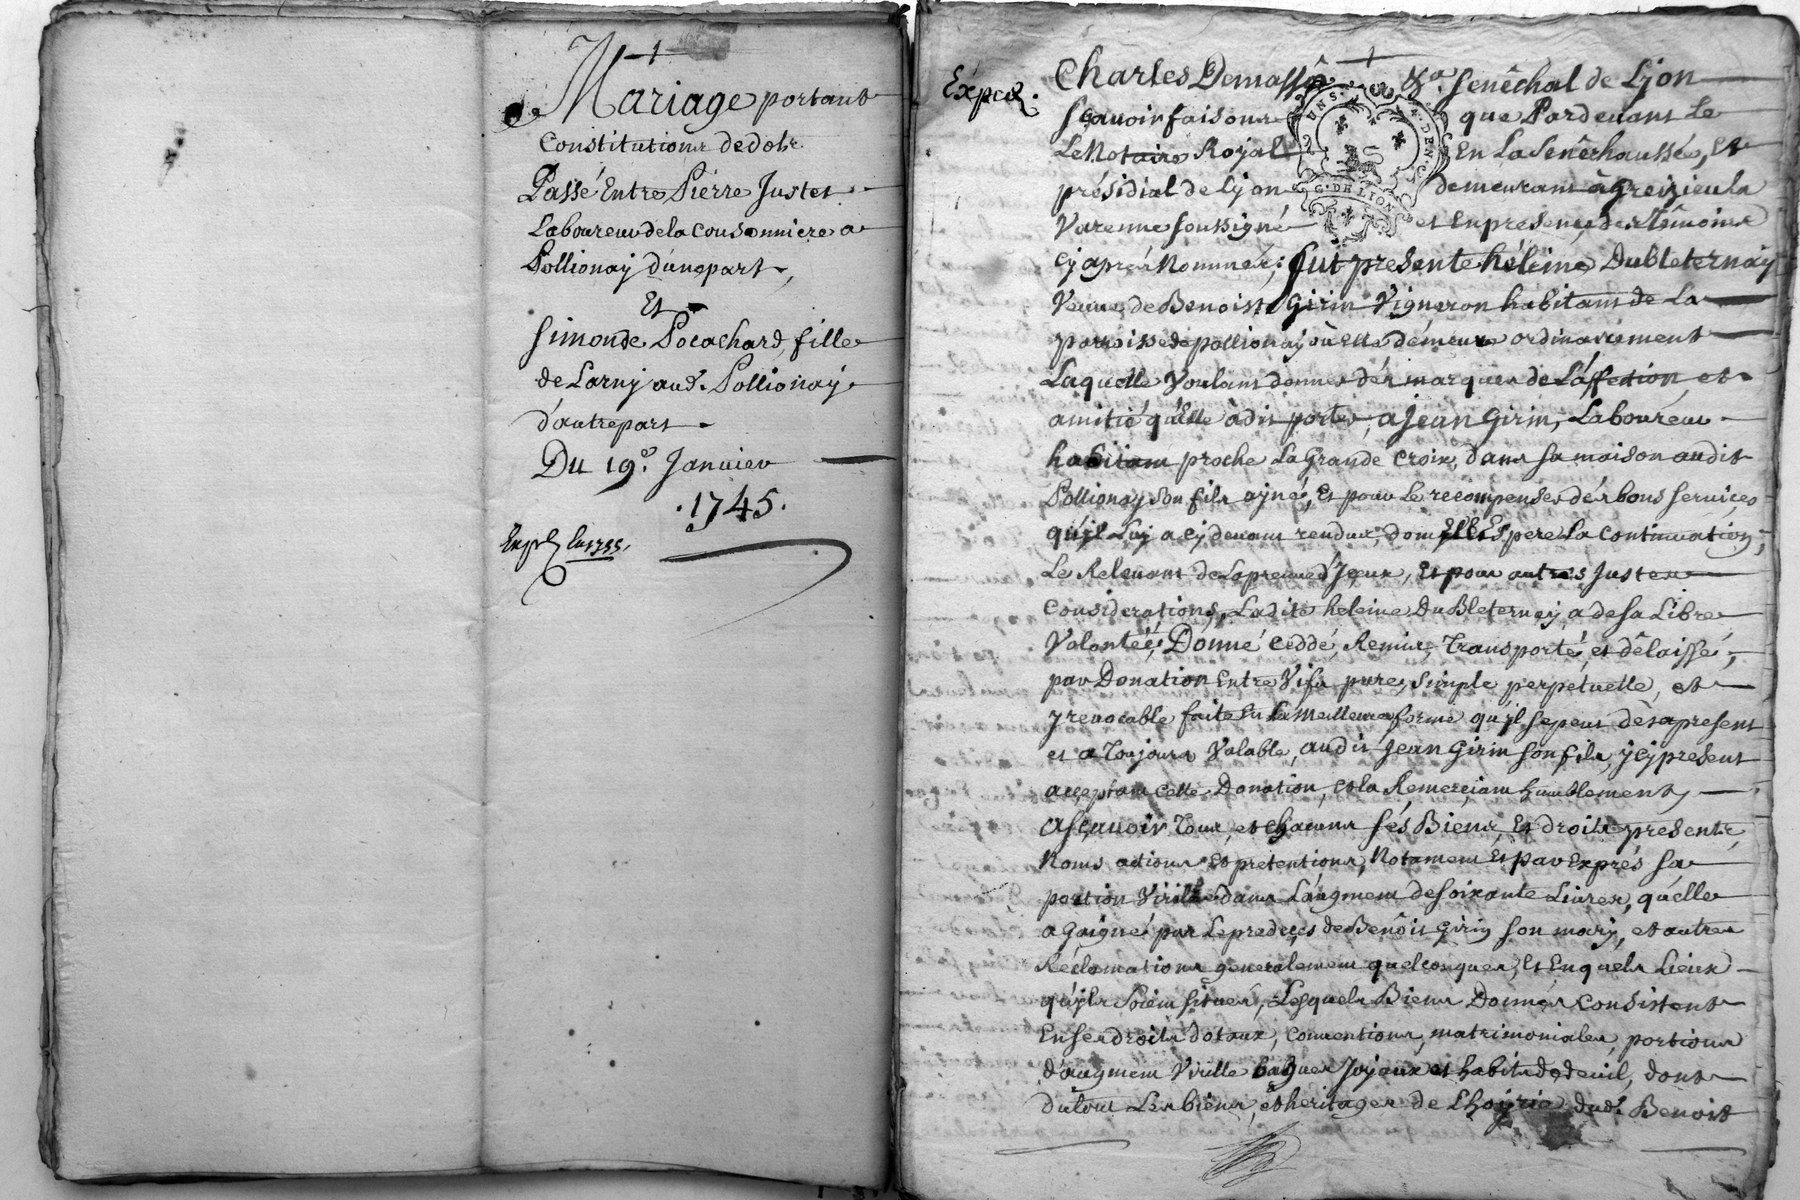 Mariage portant
Constitution de dot
Passé Entre Pierre Juttet
Laboureur de la Cousonniere a
Pollionay d'unepart,
Et
Simonde Pocachard, fille
de Larny aud. Pollionay
d'autrepart
Du 19e. Janvier
.1745.
Exped.
Charles Demassô &a. Senêchal de Lyon
Sçavoir faisons que Pardevant Le
Le Notaire Royal En La Senêchaussée, Et
présidial de Lyon demeurant à Greizieu la
Varenne soussigné et En presence des Têmoins
cy aprés Nommés; fut presente héleine Dubleternay
Veuve de Benoist Girin Vigneron habitant de La
parroisse de pollionay où Elle démeure ordinairement
Laquelle Voulant donner dés marques de L'affection et
amitié qu'Elle à dit porter, a jean Girin, Laboureur
habitant proche La Grande Croix, dans sa maison audit
Pollionay son fils ayné, Et pour Le recompenser dés bons services
qu'jl Luy a cy devant rendus, dont Elle Espere La Continuation,
Le Relevant de La preuve d'Jceux, Et pour autres Justes
Considerations, Ladite heleine DuBleternay a de sa Libre
Volontée, Donné Ceddé, Remis, Transporté, et dêlaissé,
par Donation Entre Vifs pure, simple perpetuelle, et
jrrevocable faite En La Meilleure forme qu'jl se peut dès apresent
et a Toujours Valable, audit Jean Girin son fils, jcy present
acceptant cette Donation, et la Remerçiant humblement,
Asçavoir Tous, et chacuns sés Biens, Et droits présents,
Noms actions et pretentions, Notament Et par Exprés sa
portion Virille dans L'augment de soixante Livres, qu'elle
a Gaigné par Le predeçes de Benôit Girin son mary, et autres
Réclamations generalement quelconques, Et En quels Lieux
qu'jls soient situés, Lesquels Biens Donnés consistent
En ses droits dotaux, Conventions matrimoniales, portions
d'augment Virille bagues Joyaux et habits de deüil, dont
du tout Les biens, et heritages de L'hoyrie dud. Benoit